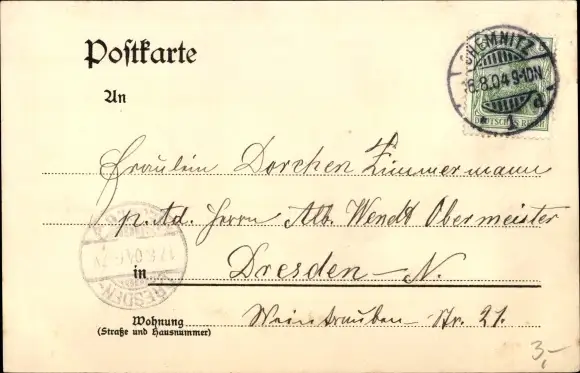 Postkarte
CHEMNITZ
16.8.04 9-10N
1 d
DEUTSCHES REICH
An
Fräulein Dorchen Zimmermann
p. Ad. Herrn Alb. Wendt Obermeister
DRESDEN
17.8.04
in Dresden-N.
Wohnung
(Straße und Hausnummer)
Weintrauben-Str. 21.
3,-